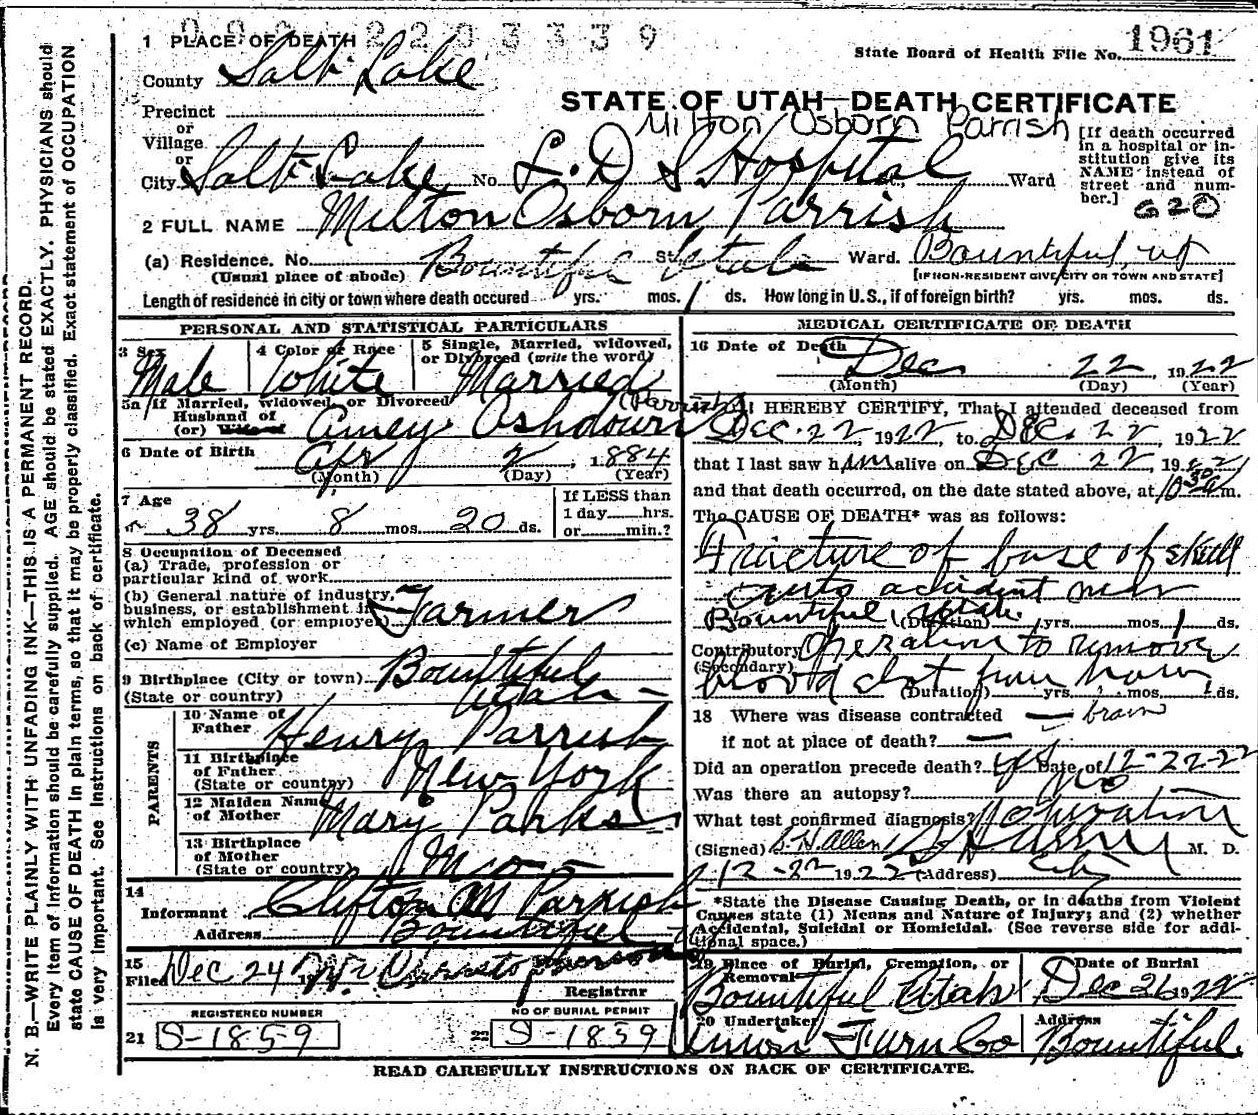 1 PLACE OF DEATH
State Board of Health File No. 1961
County Salt Lake
STATE OF UTAH—DEATH CERTIFICATE
Precinct
or
Village
or
Milton Osborn Parrish
City Salt Lake No. L. D. S. Hospital Ward
[If death occurred
in a hospital or in-
stitution give its
NAME instead of
street and num-
ber.]
620
2 FULL NAME Milton Osborn Parrish
(a) Residence. No. Bountiful St. Utah Ward. Bountiful, ut
(Usual place of abode) [IF NON-RESIDENT GIVE CITY OR TOWN AND STATE]
Length of residence in city or town where death occured yrs. mos. 1 ds. How long in U.S., if of foreign birth? yrs. mos. ds.
PERSONAL AND STATISTICAL PARTICULARS
3 Sex
Male
4 Color or Race
White
5 Single, Married, widowed,
or Divorced (write the word)
Married
5a If Married, widowed, or Divorced
Husband of
(or) Wife of
Amey Ashdown (Parrish)
6 Date of Birth Apr 2, 1884
(Month) (Day) (Year)
7 Age
38 yrs. 8 mos. 20 ds.
If LESS than
1 day hrs.
or min.?
8 Occupation of Deceased
(a) Trade, profession or
particular kind of work
(b) General nature of industry,
business, or establishment in
which employed (or employer) Farmer
(c) Name of Employer
9 Birthplace (City or town) Bountiful
(State or country) Utah
PARENTS
10 Name of
Father Henry Parrish
11 Birthplace
of Father
(State or country) New York
12 Maiden Name
of Mother Mary Parks
13 Birthplace
of Mother
(State or country) Mo
14
Informant Clifton M Parrish
Address Bountiful
15
Filed Dec 24
Registrar
REGISTERED NUMBER
21 S-1859
NO OF BURIAL PERMIT
22 S-1859
MEDICAL CERTIFICATE OF DEATH
16 Date of Death
Dec 22 1922
(Month) (Day) (Year)
I HEREBY CERTIFY, That I attended deceased from
Dec. 22, 1922, to Dec. 22, 1922
that I last saw him alive on Dec 22, 192
and that death occurred, on the date stated above, at 10 30 a m.
The CAUSE OF DEATH* was as follows:
Fracture of base of skull
auto accident near
Bountiful, Utah.
(Duration) yrs. mos. 1 ds.
Contributory Operation to remove
(Secondary)
blood clot from
(Duration) yrs. mos. 1 ds.
18 Where was disease contracted — brain
if not at place of death? —
Did an operation precede death? yes Date of 12-22-22
Was there an autopsy? No
What test confirmed diagnosis? operation
(Signed) S. H. Allen M. D.
12-22 1922 (Address) City
*State the Disease Causing Death, or in deaths from Violent
Causes state (1) Means and Nature of Injury; and (2) whether
Accidental, Suicidal or Homicidal. (See reverse side for addi-
tional space.)
19 Place of Burial, Cremation, or
Removal
Bountiful Utah
Date of Burial
Dec 26 1922
20 Undertaker
Union Furn Co
Address
Bountiful
READ CAREFULLY INSTRUCTIONS ON BACK OF CERTIFICATE.
N. B.—WRITE PLAINLY WITH UNFADING INK—THIS IS A PERMANENT RECORD.
Every item of information should be carefully supplied. AGE should be stated EXACTLY. PHYSICIANS should
state CAUSE OF DEATH in plain terms, so that it may be properly classified. Exact statement of OCCUPATION
is very important. See instructions on back of certificate.